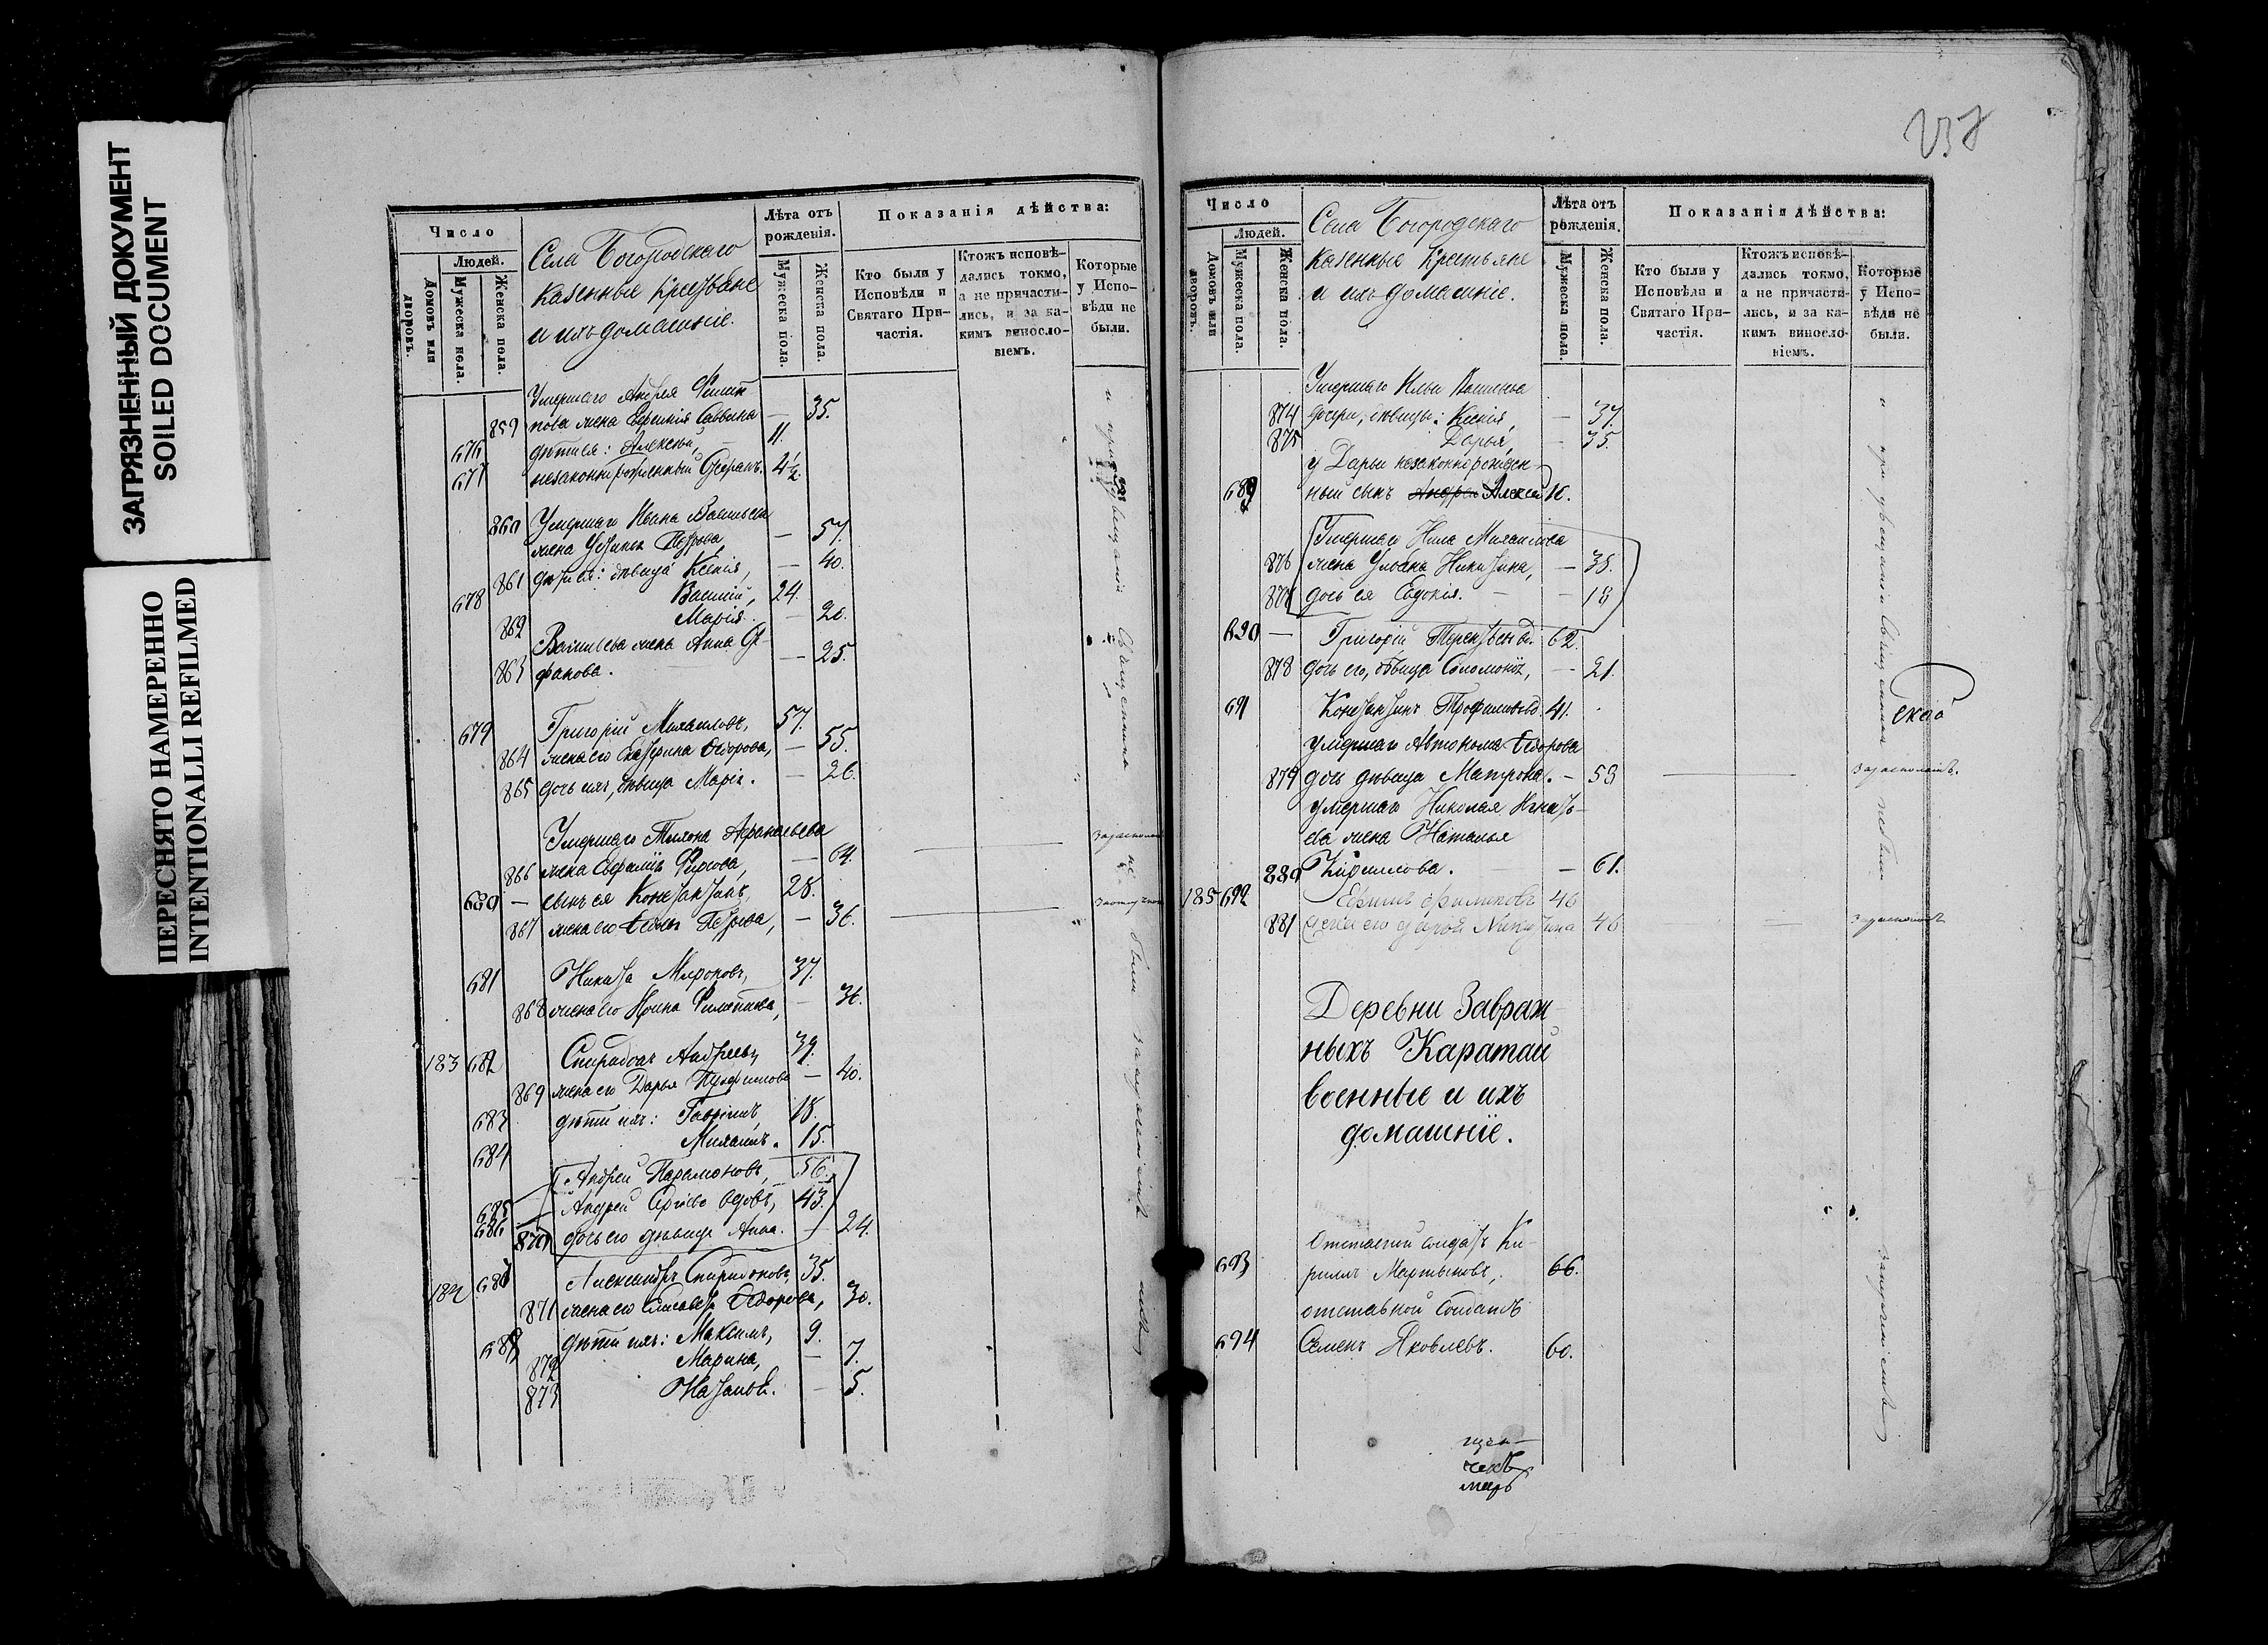 ЗАГРЯЗНЕННЫЙ ДОКУМЕНТ
SOILED DOCUMENT
ПЕРЕСНЯТО НАМЕРЕННО
INTENTIONALLI REFILMED
Число
Людей.
Домовъ или дворовъ.
Мужеска пола.
Женска пола.
Села Богородскаго
казенные крестьяне
и ихъ домашніе.
Лѣта отъ рожденія.
Мужеска пола.
Женска пола.
Показанія дѣйства:
Кто были у Исповѣди и Святаго Причастія.
Ктожъ исповѣдались токмо, а не причастились, и за какимъ винословіемъ.
Которые у Исповѣди не были.
Умершаго Андрея Филип
859 пова жена Евгенія Саввина — 35.
676 дѣти ея: Алексѣй, 11.
677 незаконнорожденный Стефанъ. 4½.
860 Умершаго Ивана Васильева
жена Устинья Петрова, — 57.
861 дѣти ея: дѣвица Ксенія, — 40.
678 Василій, 24.
862 Марія. — 20.
Васильева жена Анна Сте
863 фанова. — 25.
679 Григорій Михаиловъ, 57.
864 жена его Екатерина Ѳедорова, — 55.
865 дочь ихъ, дѣвица Марія. — 26.
Умершаго Тихона Афанасьева
866 жена Евфимія Фирсова, — 64.
680 — сынъ ея Константинъ, 28.
867 жена его Ѳедосья Петрова, — 36.
681 Никита Мироновъ, 37.
868 жена его Ирина Филиппова, — 36.
183 682 Спиридонъ Андреевъ, 39.
869 жена его Дарья Трофимова — 40.
683 дѣти ихъ: Гавріилъ, 18.
684 Михаилъ. 15.
685 Андрей Парамоновъ, 56.
686 Андрей Сергѣевъ вдовъ, 43.
870 дочь его дѣвица Анна. — 24.
184 687 Александръ Спиридоновъ, 35.
871 жена его Елисавета Ѳедорова, 30.
688 дѣти ихъ: Максимъ, 9.
872 Марина, — 7.
873 Наталья. — 5.
237
Число
Людей.
Домовъ или дворовъ.
Мужеска пола.
Женска пола.
Села Богородскаго
казенные крестьяне
и ихъ домашніе.
Лѣта отъ рожденія.
Мужеска пола.
Женска пола.
Показанія дѣйства:
Кто были у Исповѣди и Святаго Причастія.
Ктожъ исповѣдались токмо, а не причастились, и за какимъ винословіемъ.
Которые у Исповѣди не были.
Умершаго Ильи
874 дочери, дѣвицы: Ксенія, — 37.
875 Дарья, — 35.
у Дарьи незаконнорожден-
689 ный сынъ Андрей Алексѣй
Умершаго Нила Михаилова
876 жена Ульяна Никитина, — 38.
877 дочь ея Евдокія. — 18
690 — Григорій Терентьевъ вд. 62.
878 дочь его, дѣвица Соломонія, — 21.
691 Константинъ Трофимовъ вд 41.
умершаго Автонома Ѳедорова
879 дочь дѣвица Матрона. — 53
умершаго Николая Игнать-
ева жена Наталья
880 Кирилова. — 61.
185 692 Ефимъ Филиповъ 46
881 жена его Дарья Никитина 46
Деревни Завраж
ныхъ Каратай
военные и ихъ
домашніе.
Отставной солдатъ Ки-
693 риллъ Мартыновъ, 66.
отставной солдатъ
694 Семенъ Яковлевъ. 60.